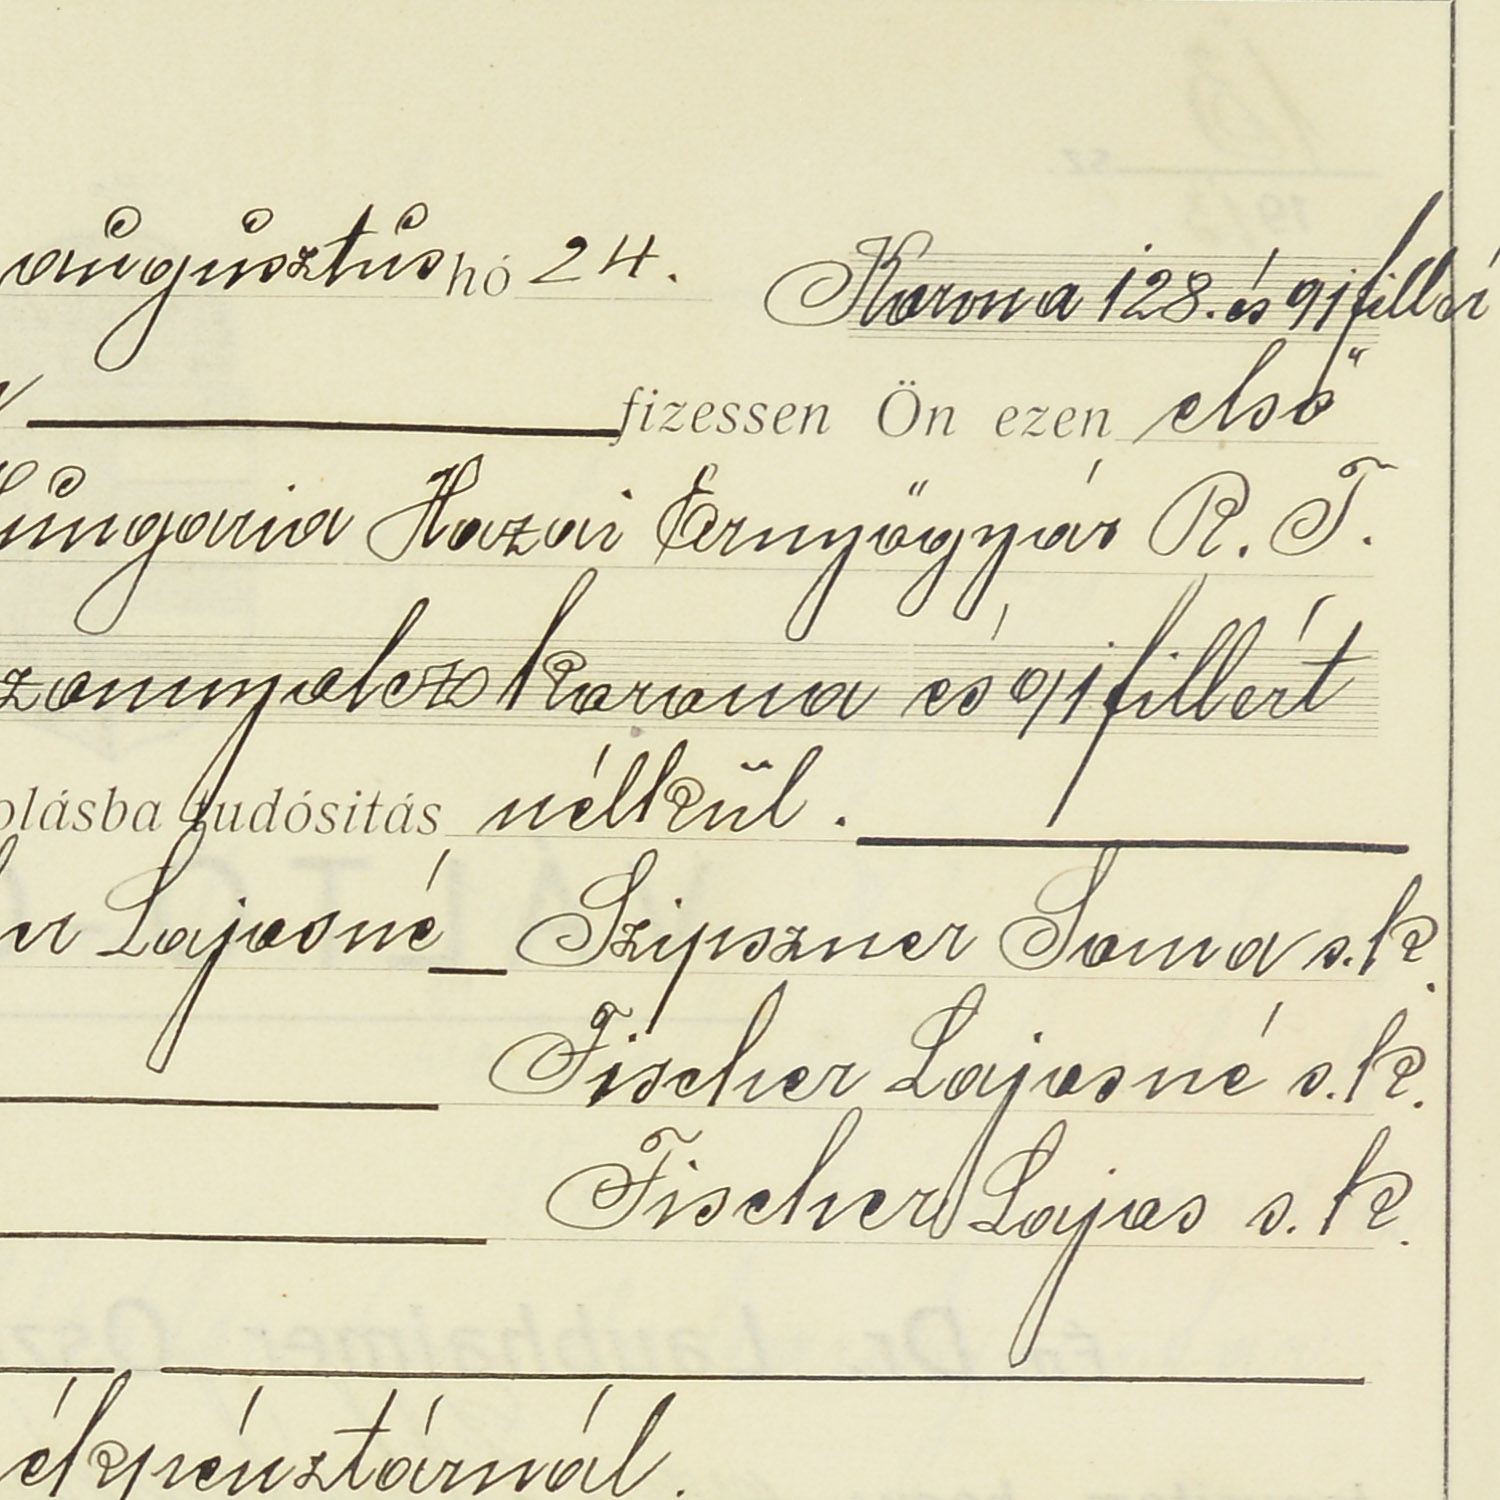 augusztus hó 24. Korona 128. és 91 fillér
fizessen Ön ezen első
Hungaria Hazai Ernyőgyár R. T.
zonnyolcz korona és 91 fillért
olásba tudósitás nélkül.
er Lajosné Szipszner Soma s.k.
Fischer Lajosné s.k.
Fischer Lajos s.k.
ékpénztárnál.